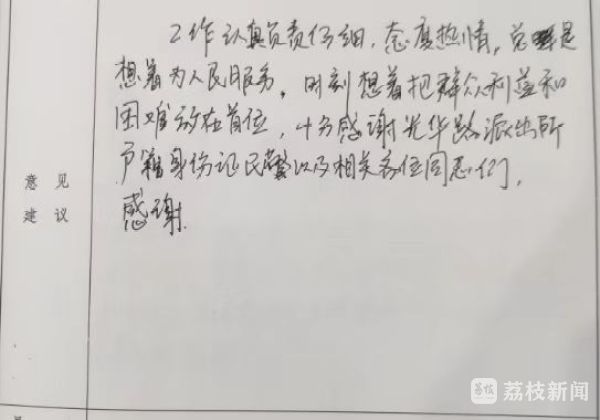 工作认真负责仔细，态度热情，总是
想着为人民服务。时刻想着把群众利益和
困难放在首位，十分感谢光华路派出所
户籍身份证民警以及相关各位同志们，
感谢.
意 见
建 议
荔枝新闻